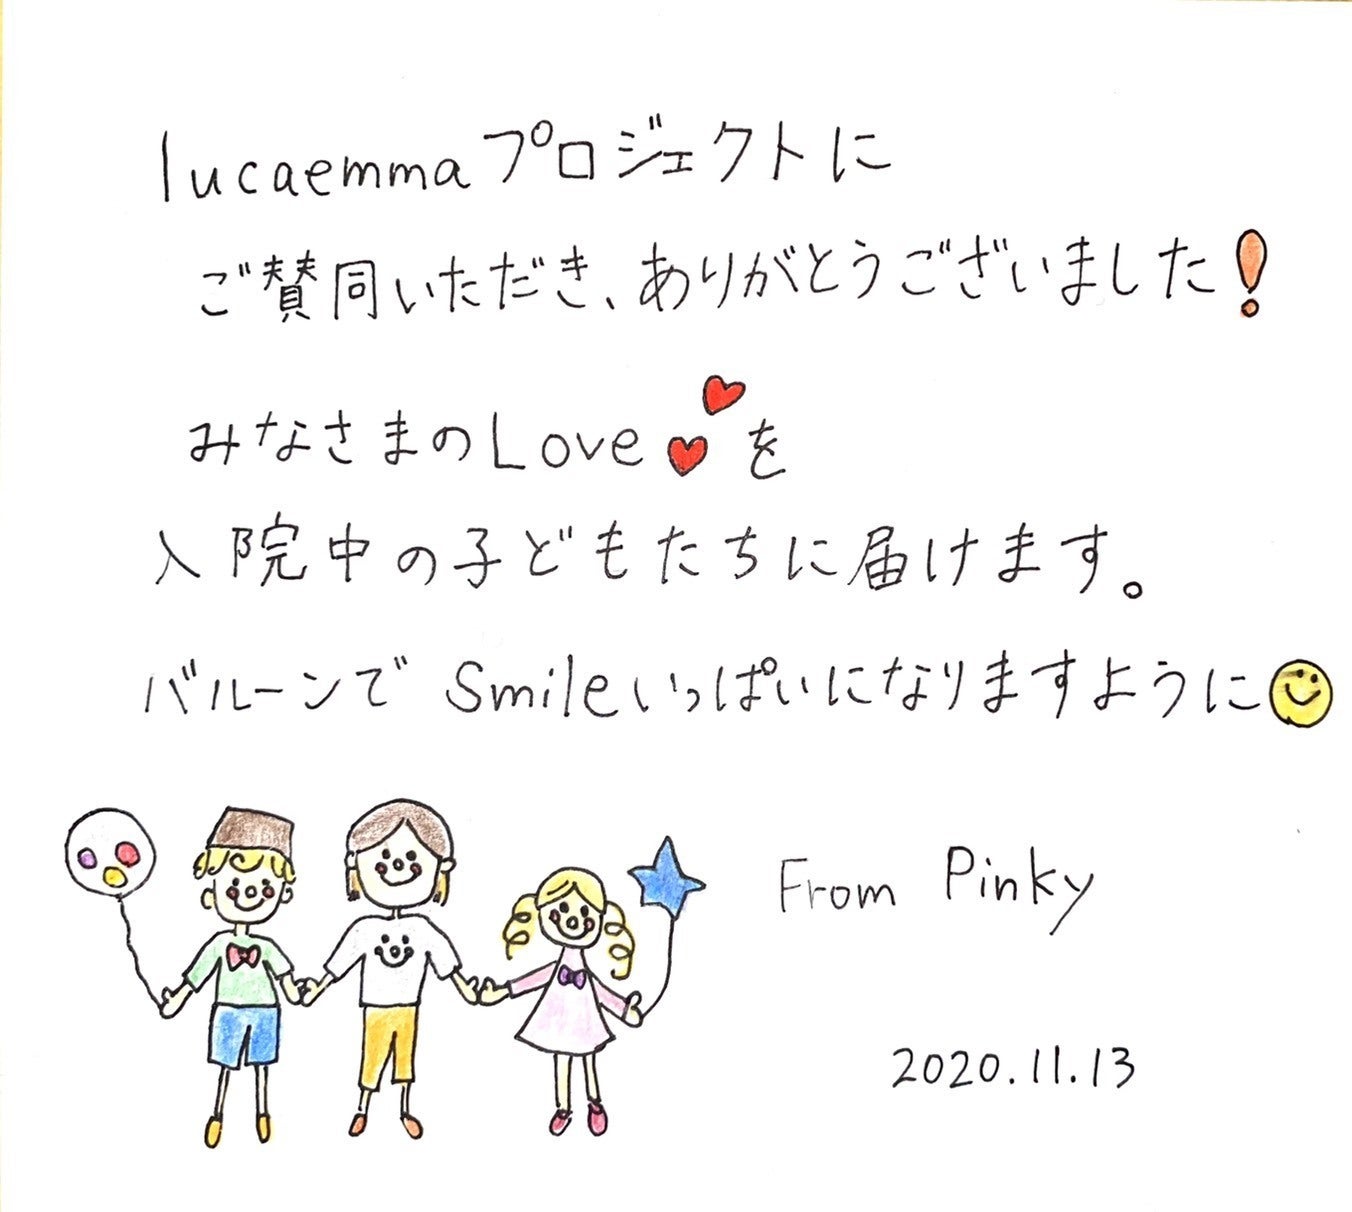 lucaemmaプロジェクトに
ご賛同いただき、ありがとうございました!
みなさまのLoveを
入院中の子どもたちに届けます。
バルーンで Smileいっぱいになりますように
From Pinky
2020.11.13